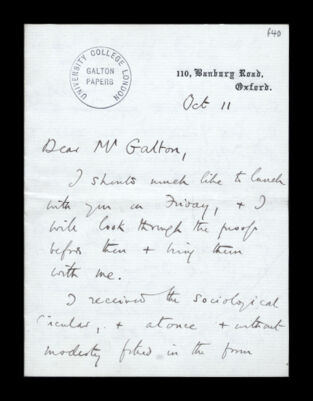 f40
UNIVERSITY COLLEGE LONDON
GALTON
PAPERS
110, Banbury Road,
Oxford.
Oct 11
Dear Mr Galton,
I should much like to lunch
with you on Friday, & I
will look through the proofs
before then & bring them
with me.
I received the sociological
circular, & at once & without
modesty filled in the form